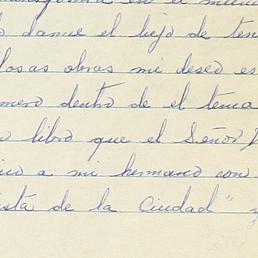 en el
dame el lujo de ten
osas obras mi deseo es
mero dentro de el tema
libro que el Señor
a mi hermano con
ista de la Ciudad" y